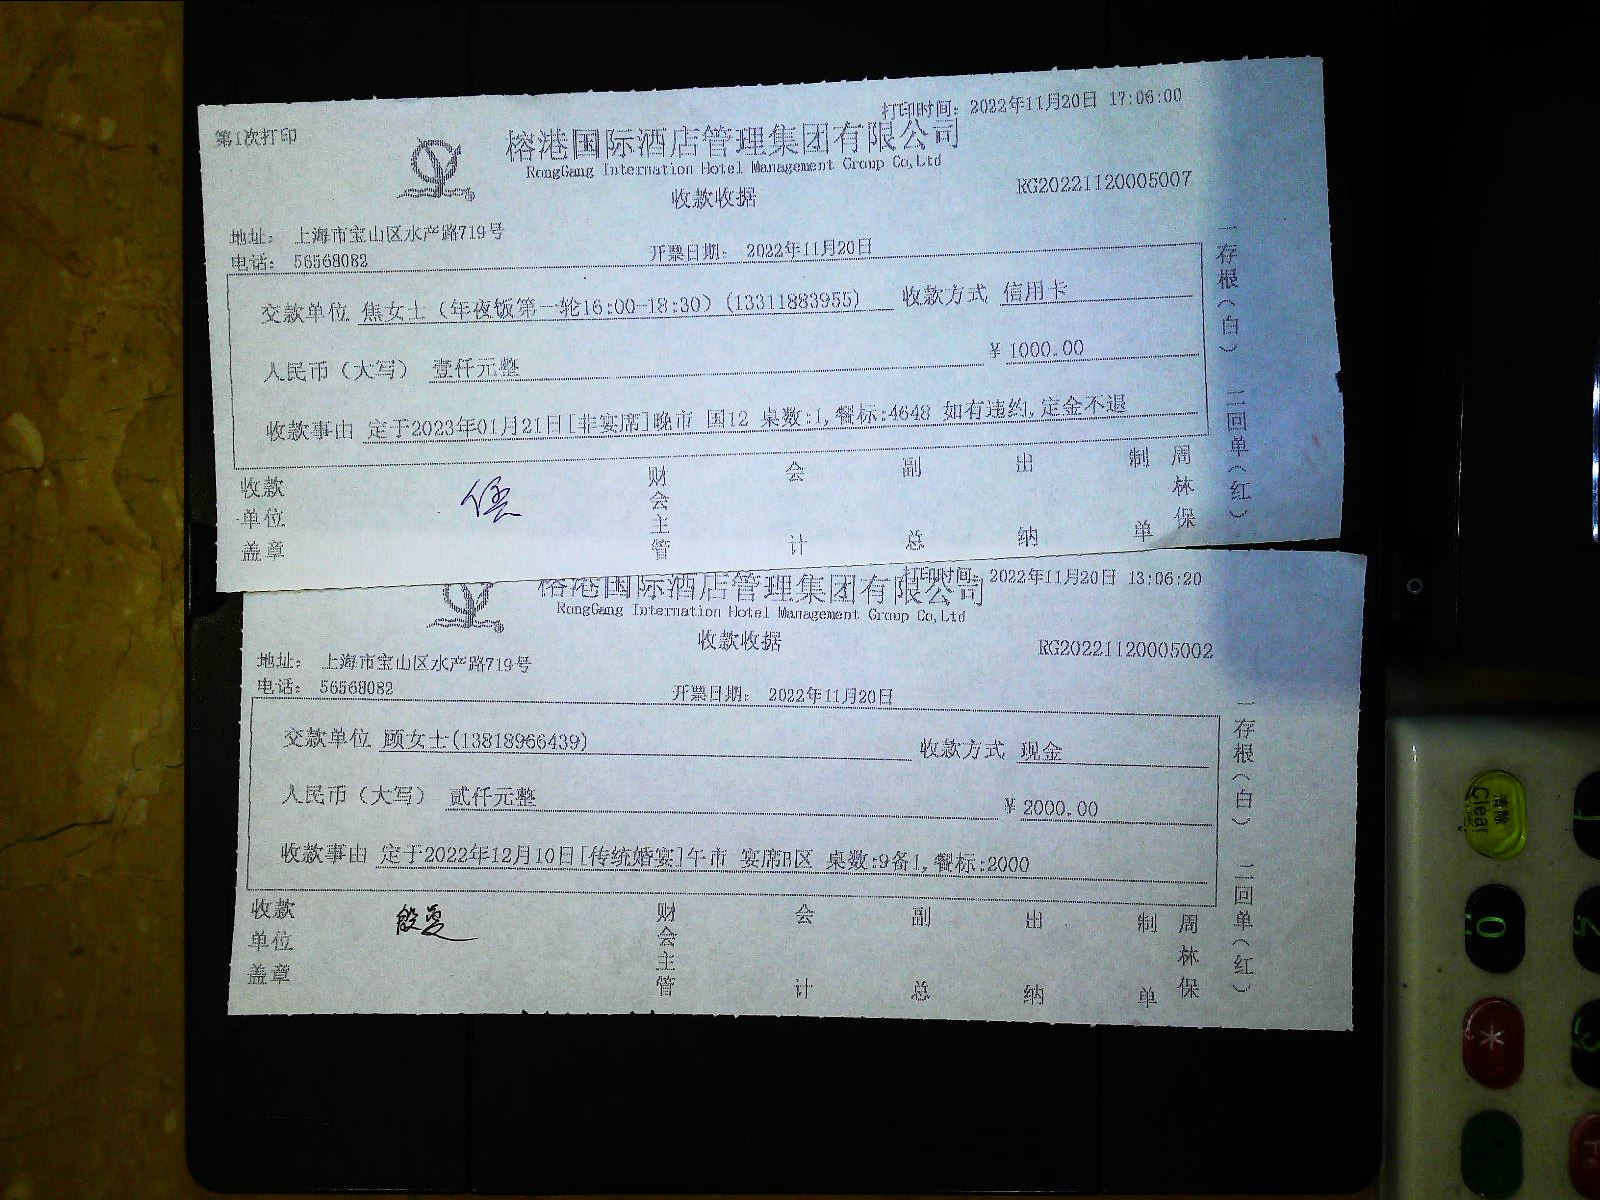 打印时间: 2022年11月20日 17:06:00
第1次打印
榕港国际酒店管理集团有限公司
RongGang Internation Hotel Management Group Co,Ltd
收款收据
RG20221120005007
地址: 上海市宝山区水产路719号
电话: 56568082
开票日期: 2022年11月20日
交款单位 焦女士(年夜饭第一轮16:00-18:30)(13311883955) 收款方式 信用卡
人民币(大写) 壹仟元整 ¥ 1000.00
收款事由 定于2023年01月21日[非宴席]晚市 国12 桌数:1,餐标:4648 如有违约,定金不退
收款单位盖章 财会主管 会计 副总 出纳 制单 周林保
一存根(白) 二回单(红)
打印时间: 2022年11月20日 13:06:20
榕港国际酒店管理集团有限公司
RongGang Internation Hotel Management Group Co,Ltd
收款收据
RG20221120005002
地址: 上海市宝山区水产路719号
电话: 56568082
开票日期: 2022年11月20日
交款单位 顾女士(13818966439) 收款方式 现金
人民币(大写) 贰仟元整 ¥ 2000.00
收款事由 定于2022年12月10日[传统婚宴]午市 宴席B区 桌数:9备1,餐标:2000
收款单位盖章 财会主管 会计 副总 出纳 制单 周林保
一存根(白) 二回单(红)
清除
Clear
0
*
2
3